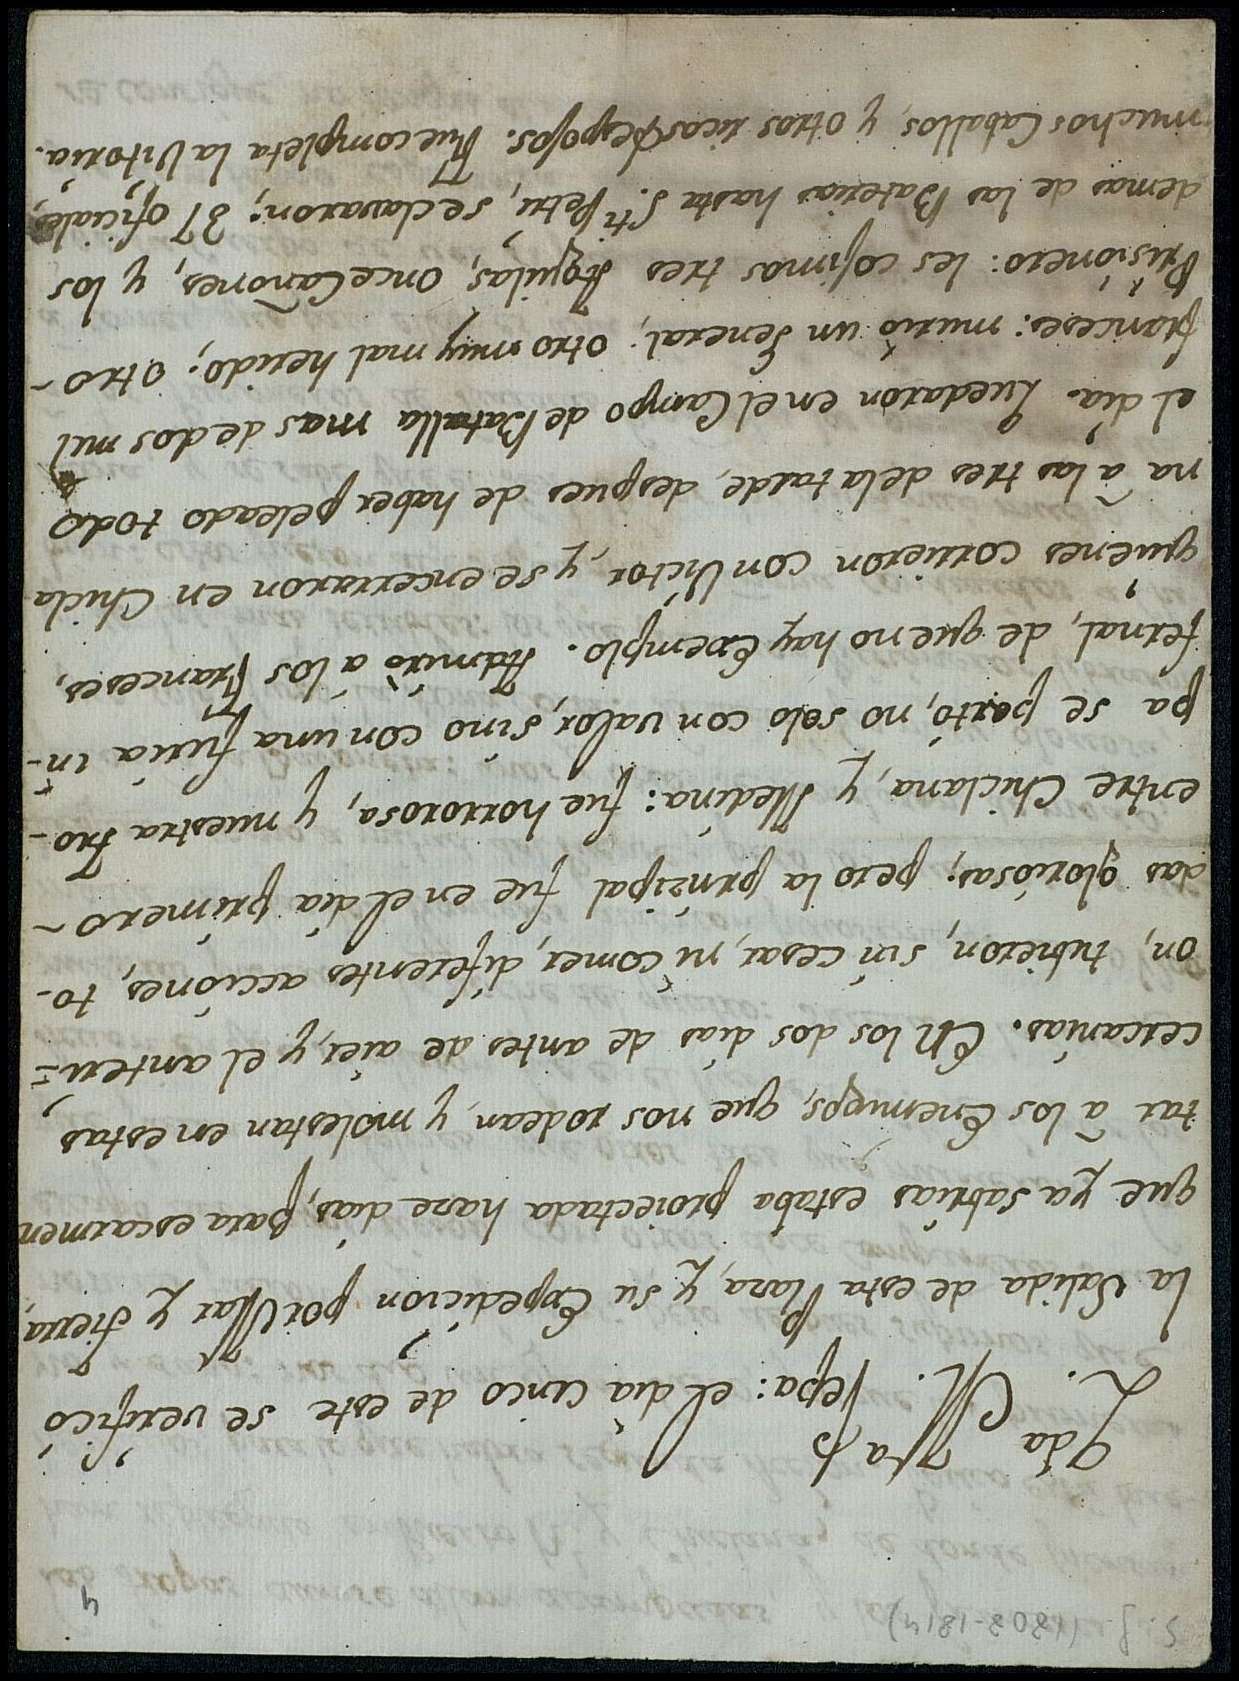 S. f. (1808-1814)
4
Yda Vta
L. M. Pepa: el dia cinco de este se verificó
la Salida de esta Plaza, y su Expedicion por Mar y tierra,
que ya sabrias estaba proiectada haze dias, para escarmen
tar à los Enemigos, que nos rodean, y molestan en estas
cercanias. En los dos dias de antes de aier, y el anteri=
on, tubieron, sin cesar, ni comer, diferentes acciones, to-
das gloriosas; pero la prinzipal fue en el dia primero-
entre Chiclana, y Medina: fue horrorosa, y nuestra tro-
pa se portó, no solo con valor, sino con una furia in-
fernal, de que no hay Exemplo. Admiró à los franceses,
quienes corrieron con Victor, y se encerraron en Chicla
na à las tres de la tarde, despues de haber peleado todo
el dia. Quedaron en el Campo de Batalla mas de dos mil
franceses: murió un General; otro muy mal herido; otro-
Prisionero: les cojimos tres Aguilas, once Cañones, y los
demas de las Baterias hasta Sti Petri, se clavaron; 37 oficiales,
muchos Caballos, y otros ricos despojos. Fue completa la Vitoria.